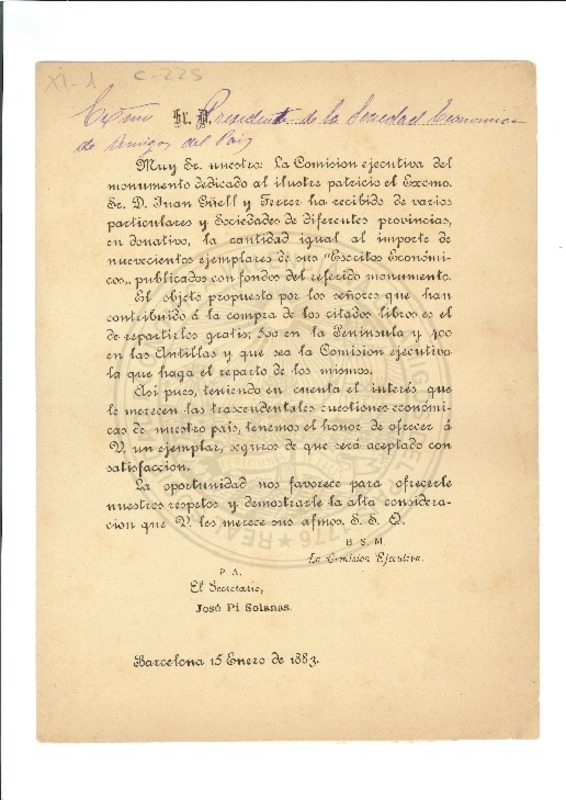 XI-1 C-225
Exmo Sr. D. Presidente de la Sociedad Economica
de Amigos del Pais
Muy Sr. nuestro: La Comision ejecutiva del
monumento dedicado al ilustre patricio el Excmo.
Sr. D. Juan Güell y Ferrer ha recibido de varios
particulares y Sociedades de diferentes provincias,
en donativo, la cantidad igual al importe de
nuevecientos ejemplares de sus "Escritos Económi-
cos„ publicados con fondos del referido monumento.
El objeto propuesto por los señores que han
contribuido á la compra de los citados libros es el
de repartirlos gratis; 500 en la Península y 400
en las Antillas y que sea la Comision ejecutiva
la que haga el reparto de los mismos.
Asi pues, teniendo en cuenta el interés que
le merecen las trascendentales cuestiones económi-
cas de nuestro país, tenemos el honor de ofrecer á
V. un ejemplar, seguros de que será aceptado con
satisfaccion.
La oportunidad nos favorece para ofrecerle
nuestros respetos y demostrarle la alta considera-
cion que V. les merece sus afmos. S. S. Q.
B. S. M.
La Comision Ejecutiva.
P. A.
El Secretario,
José Pi Solanas.
Barcelona 15 Enero de 1883.
REAL
776